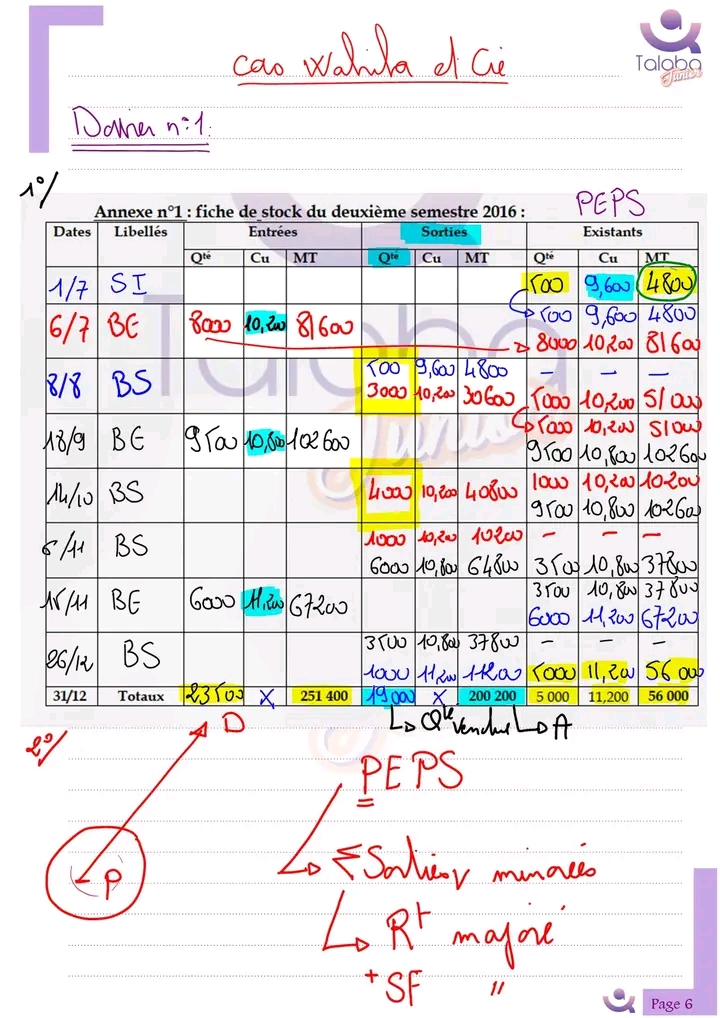 Cas Wahiba et Cie
Talaba
Junior
Dossier n°1:
1°/
Annexe n°1 : fiche de stock du deuxième semestre 2016 : PEPS
Dates Libellés Entrées Sorties Existants
Qté Cu MT Qté Cu MT Qté Cu MT
1/7 SI 500 9,600 4800
500 9,600 4800
6/7 BE 8000 10,200 81600 8000 10,200 81600
500 9,600 4800 – – –
8/8 BS 3000 10,200 30600 5000 10,200 51000
5000 10,200 51000
18/9 BE 9500 10,800 102600 9500 10,800 102600
14/10 BS 4000 10,200 40800 1000 10,200 10200
9500 10,800 102600
1000 10,200 10200 – – –
6/11 BS 6000 10,800 64800 3500 10,800 37800
3500 10,800 37800
15/11 BE 6000 11,200 67200 6000 11,200 67200
3500 10,800 37800 – – –
26/12 BS 1000 11,200 11200 5000 11,200 56000
31/12 Totaux 23500 X 251 400 19000 X 200 200 5 000 11,200 56 000
Qté vendue A
2°/
D
P
PEPS
Σ Sorties minorées
Rt majoré
+ SF "
Page 6